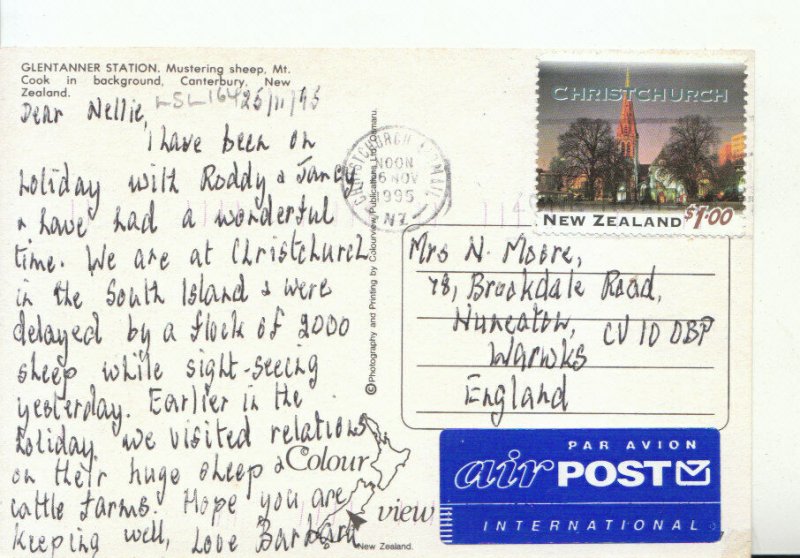 GLENTANNER STATION. Mustering sheep, Mt.
Cook in background, Canterbury, New
Zealand.
LSL164 25/11/95
Dear Nellie,
I have been on
holiday with Roddy & Janey
& have had a wonderful
time. We are at Christchurch
in the South Island & were
delayed by a flock of 2000
sheep while sight-seeing
yesterday. Earlier in the
holiday we visited relations
on their huge sheep &
cattle farms. Hope you are
keeping well, Love Barbara
© Photography and Printing by Colourview Publications Ltd. Oamaru.
Colour
view
New Zealand.
CHRISTCHURCH
NOON
NOV
1995
NZ
CHRISTCHURCH
NEW ZEALAND $1.00
Mrs N. Moore,
78, Brookdale Road,
Nuneaton, CV10 0BP
Warwks
England
PAR AVION
air POST
INTERNATIONAL